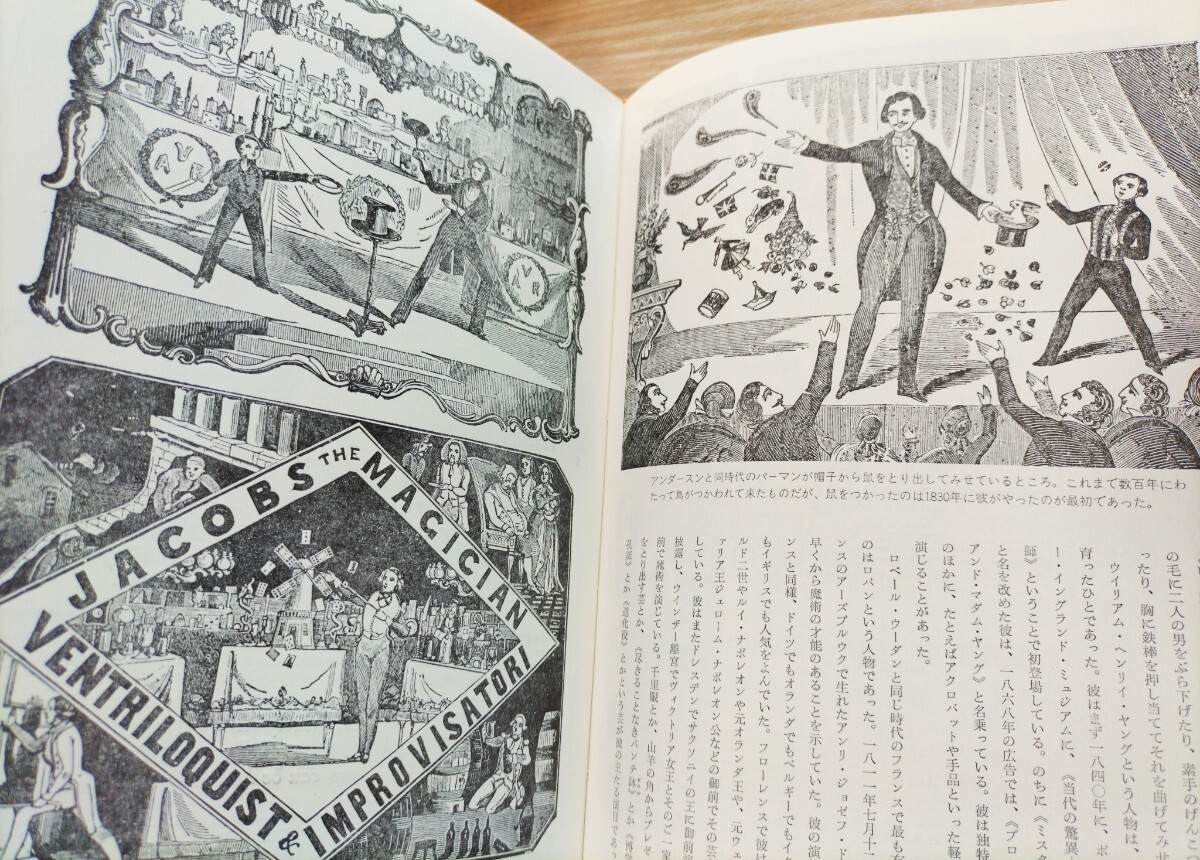 JACOBS THE MAGICIAN
VENTRILOQUIST & IMPROVISATORI
アンダースンと同時代のバーマンが帽子から鼠をとり出してみせているところ。これまで数百年にわ
たって鳥がつかわれて来たものだが、鼠をつかったのは1830年に彼がやったのが最初であった。
の毛に二人の男をぶら下げたり、素手のげんこ
ったり、胸に鉄棒を押し当ててそれを曲げてみせ
ウイリアム・ヘンリイ・ヤングという人物は、
育ったひとであった。彼はまず一八四〇年に、ボ
ー・イングランド・ミュジアムに、《当代の驚異
師》ということで初登場している。のちに《ミス
と名を改めた彼は、一八六八年の広告では、《プロ
アンド・マダム・ヤング》と名乗っている。彼は独特
のほかに、たとえばアクロバットや手品といった軽
演じることがあった。
ロベール・ウーダンと同じ時代のフランスで最も有
のはロバンという人物であった。一八一一年七月十二
ンスのアーズブルウクで生れたアンリ・ジョゼフ・ド
早くから魔術の才能のあることを示していた。彼の演
ンスと同様、ドイツでもオランダでもベルギーでもイ
もイギリスでも人気をよんでいた。フローレンスで彼は
ルド二世やルイ・ナポレオンや元オランダ王や、元ウェ
ァリア王ジェローム・ナポレオン公などの御前でその芸
している。彼はまたドレスデンでサクソニイの王に御前
披露し、ウインザー離宮でヴィクトリア女王とそのご一家
前で魔術を演じている。千里眼とか、山羊の角からプレゼ
をとり出す芸とか、《尽きることなきパンチ鉢》とか《博
孔雀》とか《道化役》とかという芸が彼の主たる演目であっ